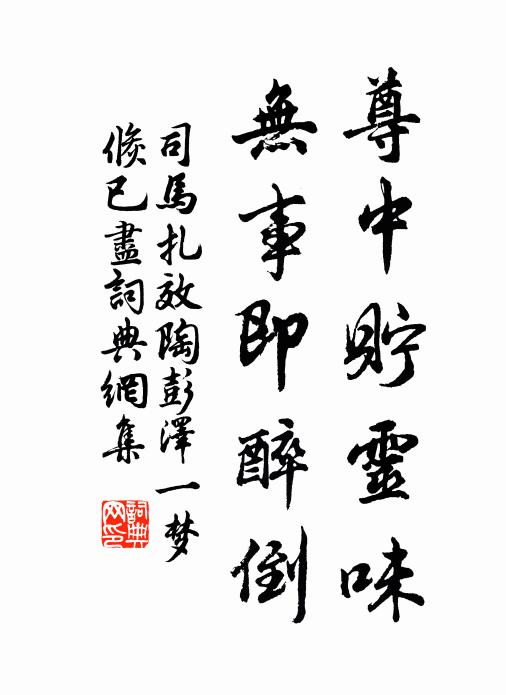 尊中貯靈味
無事即醉倒
司馬扎效陶彭澤一梦
倏已盡詞典網集
詞典
网印